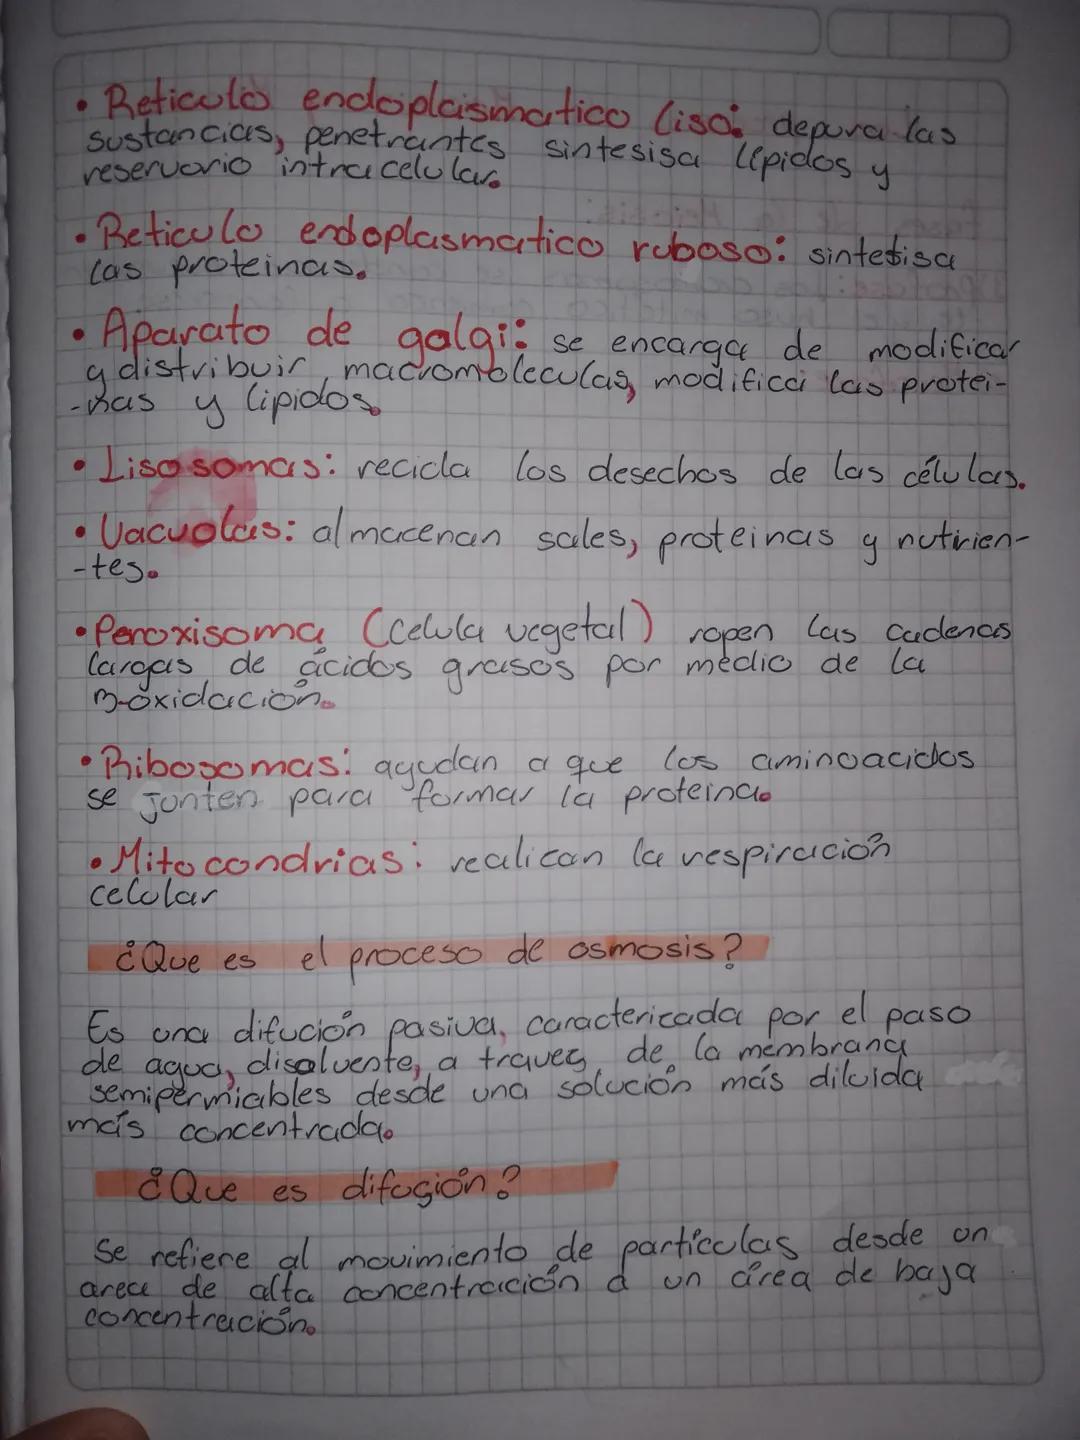 • Reticulo endoplasmatico liso: depura las
sustancias, penetrantes sintesisa lípidos y
reservorio intracelular.
• Reticulo endoplasmatico ruboso: sintetisa
las proteinas.
• Aparato de golgi: se encarga de modificar
y distribuir, macromoleculas, modifica las protei-
-nas y lipidos.
• Lisosomas: recicla los desechos de las células.
• Vacuolas: almacenan sales, proteinas y nutrien-
-tes.
• Peroxisoma (celula vegetal) ropen las cadenas
largas de ácidos grasos por medio de la
B-oxidación.
• Ribosomas: ayudan a que los aminoacidos
se junten para formar la proteina.
• Mitocondrias: realican la respiración
celular
¿Que es el proceso de osmosis?
Es una difución pasiva, caractericada por el paso
de agua, disolvente, a traves de la membrana
semipermiables desde una solución más diluida
más concentrada.
¿Que es difugión?
Se refiere al movimiento de partículas desde un
area de alta concentración a un área de baja
concentración.